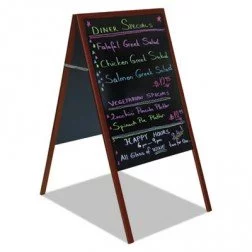 DINER SPECIALS
Falafel Greek Salad
Chicken Greek Salad
Salmon Greek Salad
VEGETARIAN SPECIALS
Zucchini Parcels Platter
Spinach Pie Platter
HAPPY HOURS
All Glass of